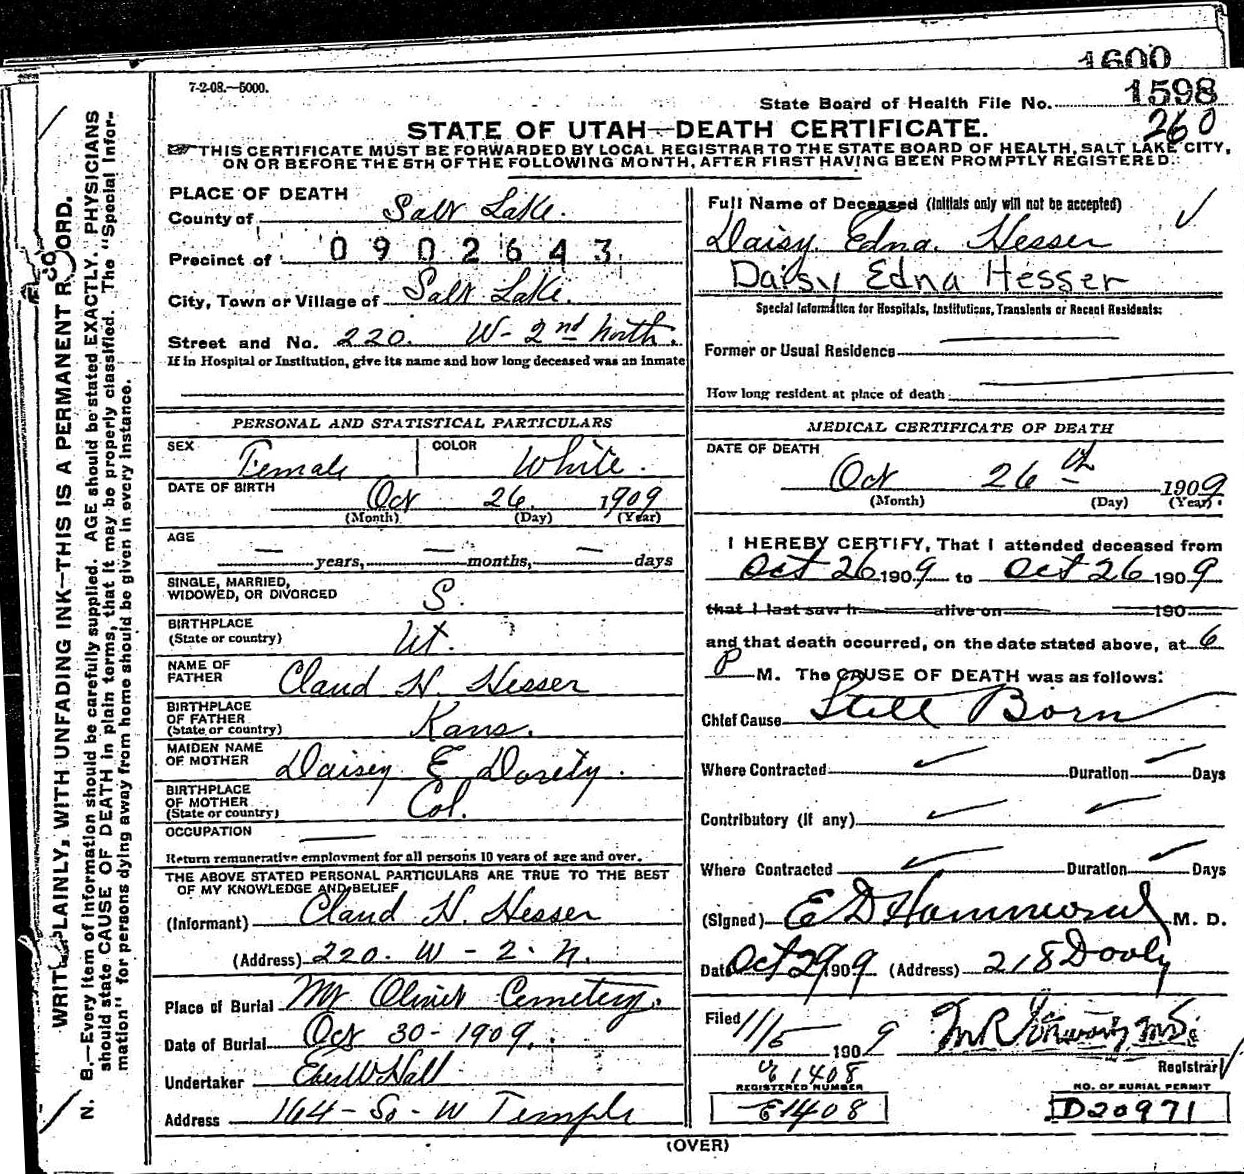 1600
7-2-08.—5000.
State Board of Health File No. 1598
260
STATE OF UTAH—DEATH CERTIFICATE.
THIS CERTIFICATE MUST BE FORWARDED BY LOCAL REGISTRAR TO THE STATE BOARD OF HEALTH, SALT LAKE CITY,
ON OR BEFORE THE 5TH OF THE FOLLOWING MONTH, AFTER FIRST HAVING BEEN PROMPTLY REGISTERED.
PLACE OF DEATH
County of Salt Lake.
Precinct of 0902643
City, Town or Village of Salt Lake.
Street and No. 220. W- 2nd North.
If in Hospital or Institution, give its name and how long deceased was an inmate
PERSONAL AND STATISTICAL PARTICULARS
SEX Female COLOR White.
DATE OF BIRTH Oct 26 1909
(Month) (Day) (Year)
AGE
— years, — months, — days
SINGLE, MARRIED,
WIDOWED, OR DIVORCED S.
BIRTHPLACE
(State or country) Ut.
NAME OF
FATHER Claud H. Hesser
BIRTHPLACE
OF FATHER
(State or country) Kans.
MAIDEN NAME
OF MOTHER Daisey E Dority.
BIRTHPLACE
OF MOTHER
(State or country) Col.
OCCUPATION
Return remunerative employment for all persons 10 years of age and over.
THE ABOVE STATED PERSONAL PARTICULARS ARE TRUE TO THE BEST
OF MY KNOWLEDGE AND BELIEF
(Informant) Claud H. Hesser
(Address) 220. W - 2. N.
Place of Burial Mt Olivet Cemetery.
Date of Burial Oct 30 - 1909.
Undertaker Eber W Hall
Address 164 - So - W Temple
Full Name of Deceased (Initials only will not be accepted)
Daisy Edna. Hesser
Daisy Edna Hesser
Special Information for Hospitals, Institutions, Transients or Recent Residents:
Former or Usual Residence
How long resident at place of death
MEDICAL CERTIFICATE OF DEATH
DATE OF DEATH
Oct 26th 1909
(Month) (Day) (Year)
I HEREBY CERTIFY, That I attended deceased from
Oct 26 1909 to Oct 26 1909
that I last saw h alive on 190
and that death occurred, on the date stated above, at 6
P M. The CAUSE OF DEATH was as follows:
Chief Cause Still Born
Where Contracted Duration Days
Contributory (if any)
Where Contracted Duration Days
(Signed) E D Hammond M. D.
Date Oct 29 1909 (Address) 218 Dooly
Filed 11/5 1909 M.D.
Registrar
E 1408
REGISTERED NUMBER
E1408
NO. OF BURIAL PERMIT
D20971
(OVER)
WRITE PLAINLY, WITH UNFADING INK—THIS IS A PERMANENT RECORD.
N. B.—Every item of information should be carefully supplied. AGE should be stated EXACTLY. PHYSICIANS
should state CAUSE OF DEATH in plain terms, that it may be properly classified. The "Special Infor-
mation" for persons dying away from home should be given in every instance.